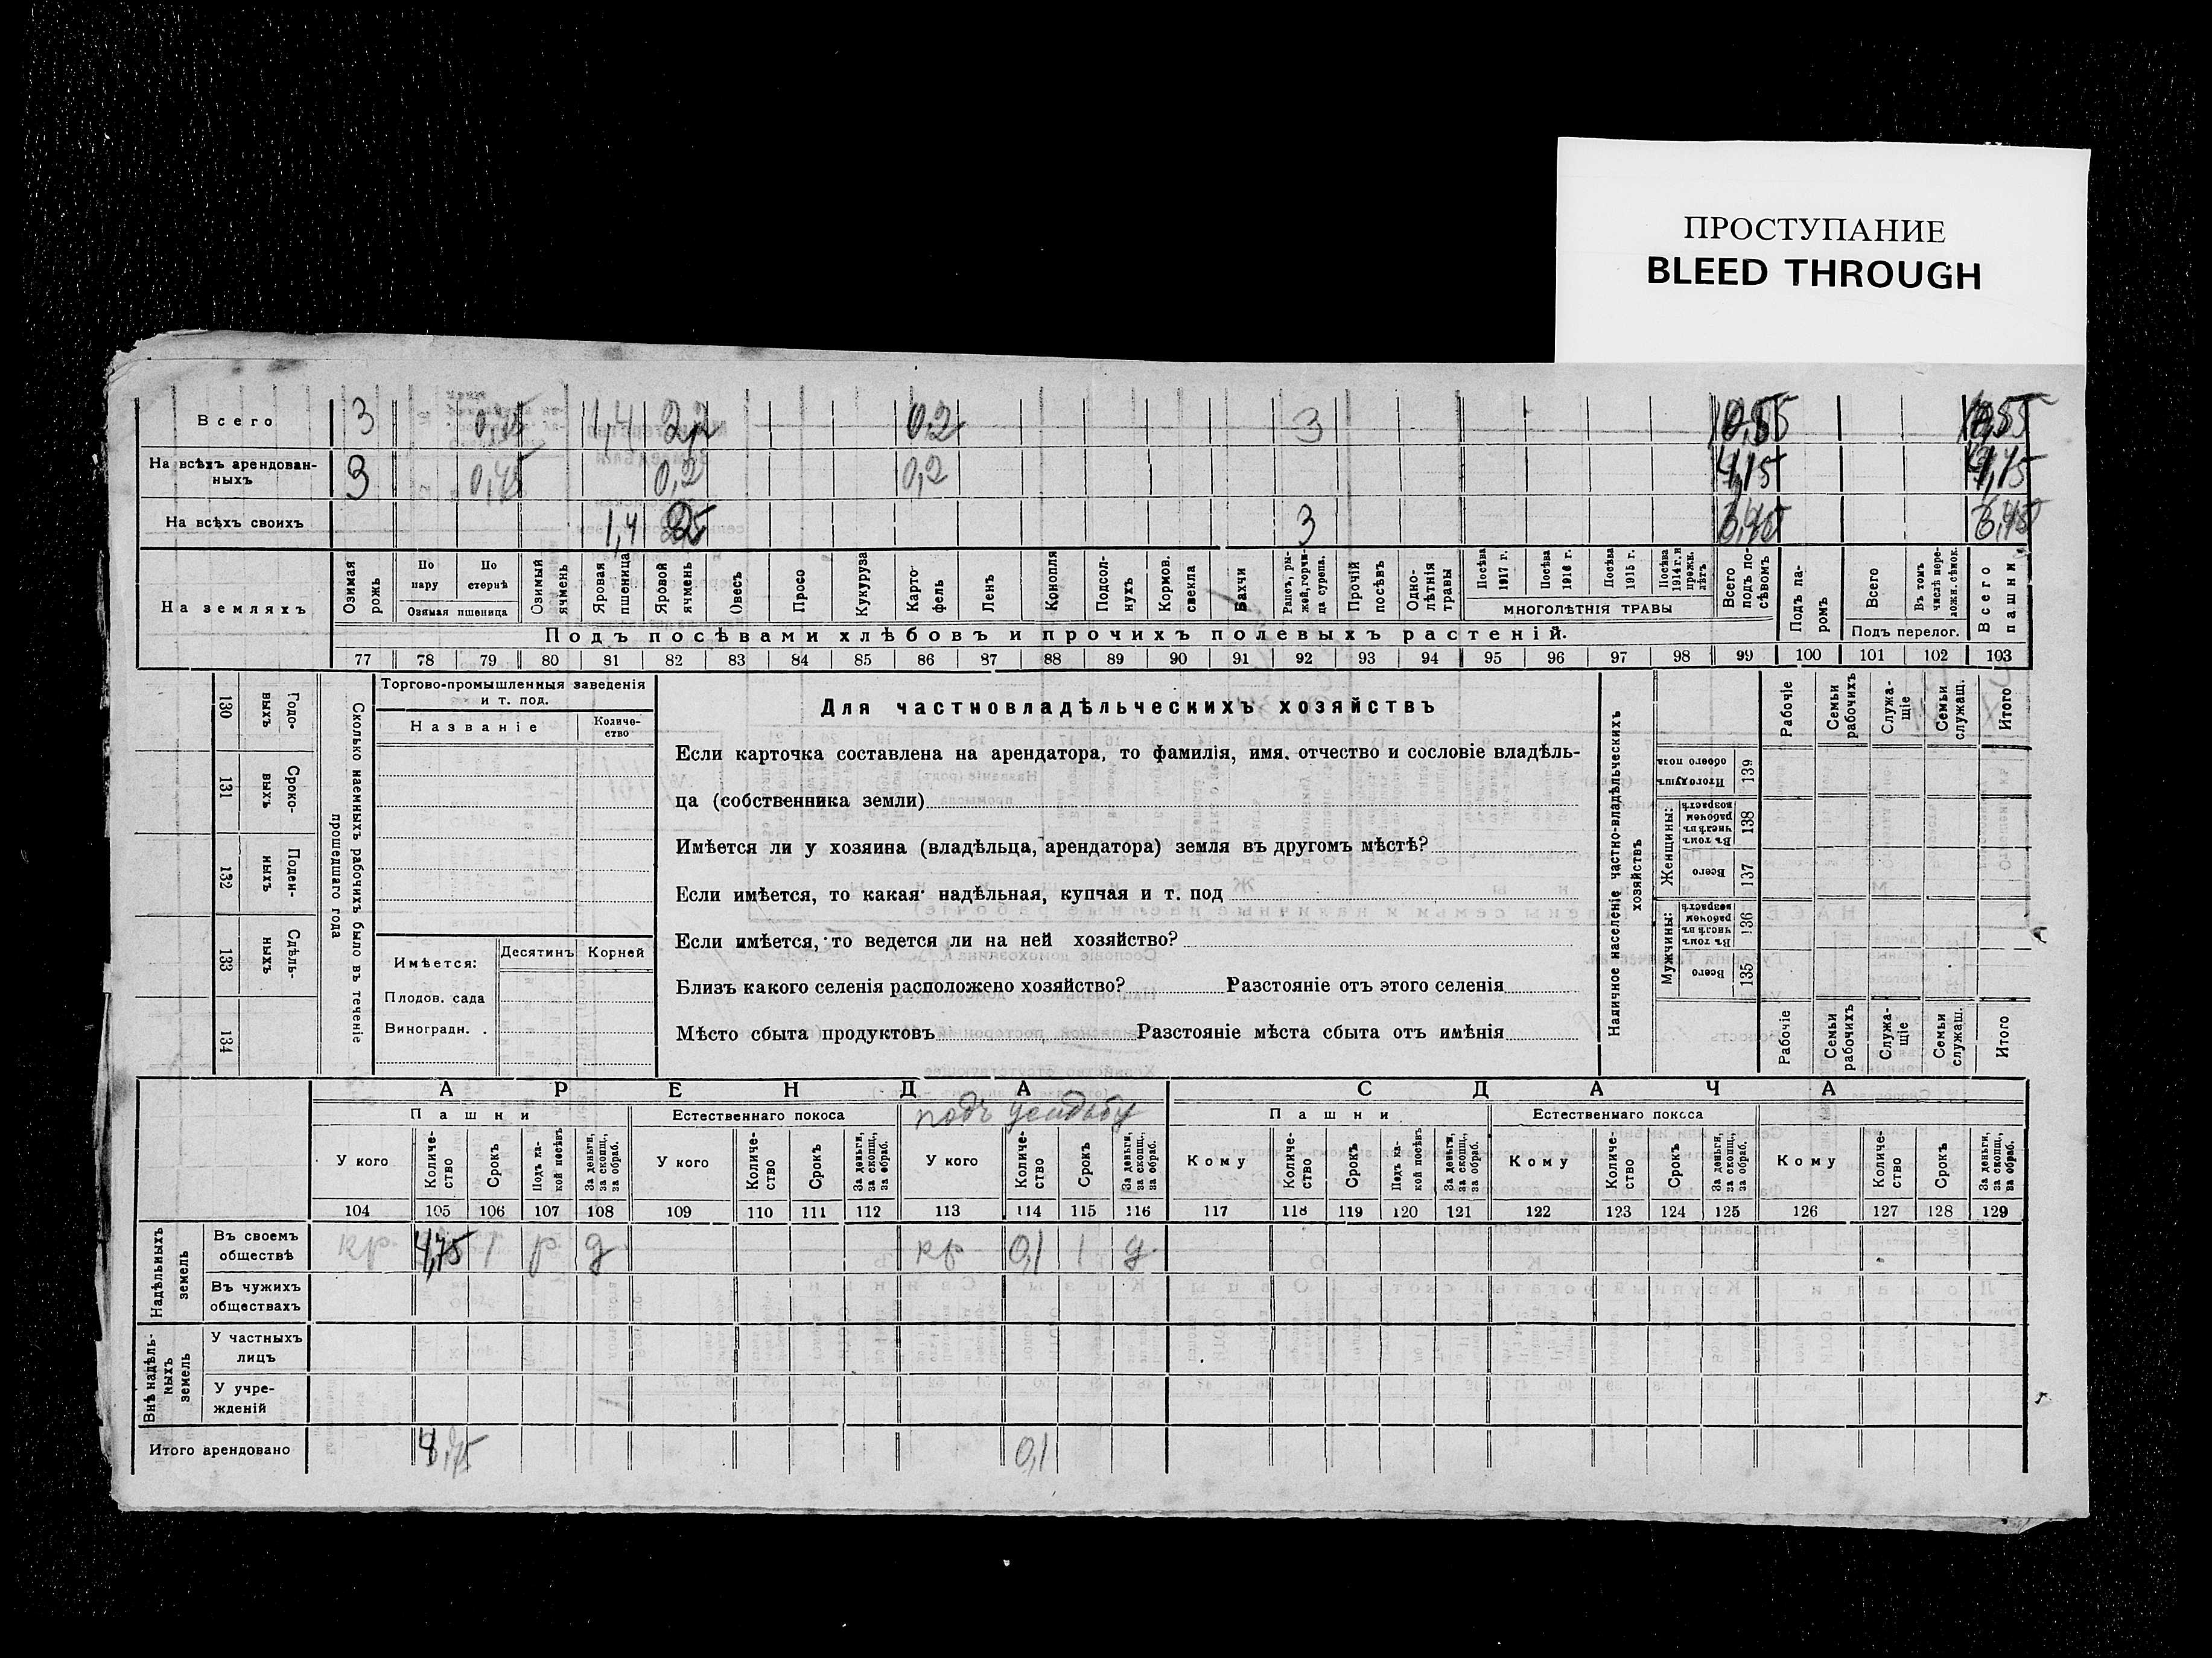 ПРОСТУПАНИЕ
BLEED THROUGH
Всего 3 1,4 0,2 3
На всѣхъ арендован-
ныхъ 3 0,2 0,2 4,15
На всѣхъ своихъ 1,4 3
На земляхъ
Озимая рожь
По пару
По стернѣ
Озимая пшеница
Озимый ячмень
Яровая пшеница
Яровой ячмень
Овесъ
Просо
Кукуруза
Карто-
фель
Ленъ
Конопля
Подсол-
нухъ
Кормов.
свекла
Бахчи
Рапсъ, ры-
жей, горчи-
ца сурепа.
Прочій
посѣвъ
Одно-
лѣтнія
травы
Посѣва 1917 г.
Посѣва 1916 г.
Посѣва 1915 г.
Посѣва 1914 г. и прежн. лѣтъ
МНОГОЛѢТНІЯ ТРАВЫ
Всего
подъ по-
сѣвомъ
Подъ па-
ромъ
Всего
Въ томъ
числѣ пере-
ложн. сѣнок.
Подъ перелог.
Всего пашни
Подъ посѣвами хлѣбовъ и прочихъ полевыхъ растеній.
77 78 79 80 81 82 83 84 85 86 87 88 89 90 91 92 93 94 95 96 97 98 99 100 101 102 103
130 Годо-
выхъ
131 Сроко-
выхъ
132 Поден-
ныхъ
133 Сдѣль-
ныхъ
134
Сколько наемныхъ рабочихъ было въ теченіе
прошедшаго года
Торгово-промышленныя заведенія
и т. под.
Названіе
Количе-
ство
Имѣется:
Десятинъ Корней
Плодов. сада
Виноградн.
Для частновладѣльческихъ хозяйствъ
Если карточка составлена на арендатора, то фамилія, имя, отчество и сословіе владѣль-
ца (собственника земли)
Имѣется ли у хозяина (владѣльца, арендатора) земля въ другомъ мѣстѣ?
Если имѣется, то какая надѣльная, купчая и т. под
Если имѣется, то ведется ли на ней хозяйство?
Близъ какого селенія расположено хозяйство? Разстояніе отъ этого селенія
Мѣсто сбыта продуктовъ Разстояніе мѣста сбыта отъ имѣнія
Наличное населеніе частно-владѣльческихъ
хозяйствъ
Рабочіе
Семьи
рабочихъ
Служа-
щіе
Семьи
служащ.
Итого
Итого душъ
обоего пола
139
Женщины:
Въ томъ
числѣ въ
рабочемъ
возрастѣ
138
Всего
137
Мужчины:
Въ томъ
числѣ въ
рабочемъ
возрастѣ
136
Всего
135
Рабочіе
Семьи
рабочихъ
Служа-
щіе
Семьи
служащ.
Итого
АРЕНДА СДАЧА
Пашни Естественнаго покоса подъ усадьбу Пашни Естественнаго покоса
У кого
Количе-
ство
Срокъ
Подъ ка-
кой посѣвъ
За деньги,
за скопщ.,
за обраб.
У кого
Количе-
ство
Срокъ
За деньги,
за скопщ.,
за обраб.
У кого
Количе-
ство
Срокъ
За деньги,
за скопщ.,
за обраб.
Кому
Количе-
ство
Срокъ
Подъ ка-
кой посѣвъ
За деньги,
за скопщ.,
за обраб.
Кому
Количе-
ство
Срокъ
За деньги,
за скопщ.,
за обраб.
Кому
Количе-
ство
Срокъ
За деньги,
за скопщ.,
за обраб.
104 105 106 107 108 109 110 111 112 113 114 115 116 117 118 119 120 121 122 123 124 125 126 127 128 129
Надѣльныхъ
земель
Въ своемъ
обществѣ кр. 4,75 1 р д кр 0,1 1 д.
Въ чужихъ
обществахъ
Внѣ надѣль-
ныхъ
земель
У частныхъ
лицъ
У учре-
жденій
Итого арендовано 0,1